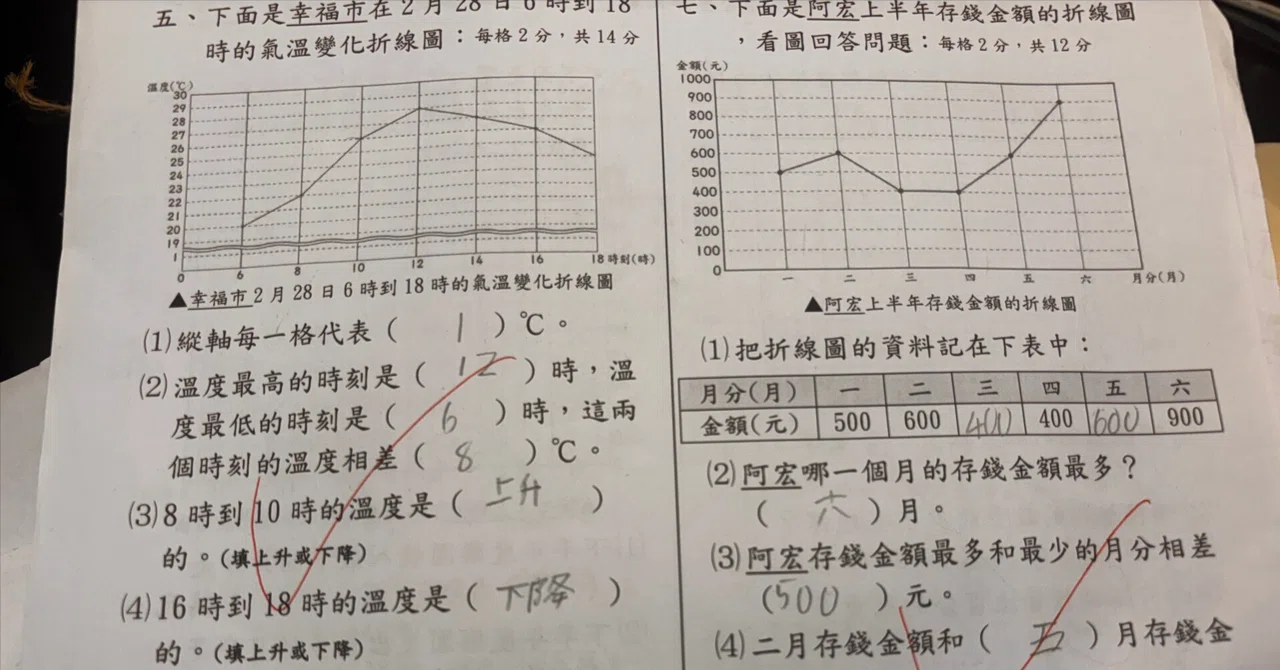 五、下面是幸福市在2月28日6時到18
時的氣溫變化折線圖：每格2分，共14分
溫度(℃)
30
29
28
27
26
25
24
23
22
21
20
19
1
0 6 8 10 12 14 16 18 時刻(時)
▲幸福市2月28日6時到18時的氣溫變化折線圖
⑴縱軸每一格代表（ 1 ）℃。
⑵溫度最高的時刻是（ 12 ）時，溫
度最低的時刻是（ 6 ）時，這兩
個時刻的溫度相差（ 8 ）℃。
⑶8時到10時的溫度是（ 上升 ）
的。(填上升或下降)
⑷16時到18時的溫度是（ 下降 ）
的。(填上升或下降)
七、下面是阿宏上半年存錢金額的折線圖
，看圖回答問題：每格2分，共12分
金額(元)
1000
900
800
700
600
500
400
300
200
100
0
一 二 三 四 五 六 月分(月)
▲阿宏上半年存錢金額的折線圖
⑴把折線圖的資料記在下表中：
月分(月) 一 二 三 四 五 六
金額(元) 500 600 400 400 600 900
⑵阿宏哪一個月的存錢金額最多？
（ 六 ）月。
⑶阿宏存錢金額最多和最少的月分相差
（500 ）元。
⑷二月存錢金額和（ 五 ）月存錢金